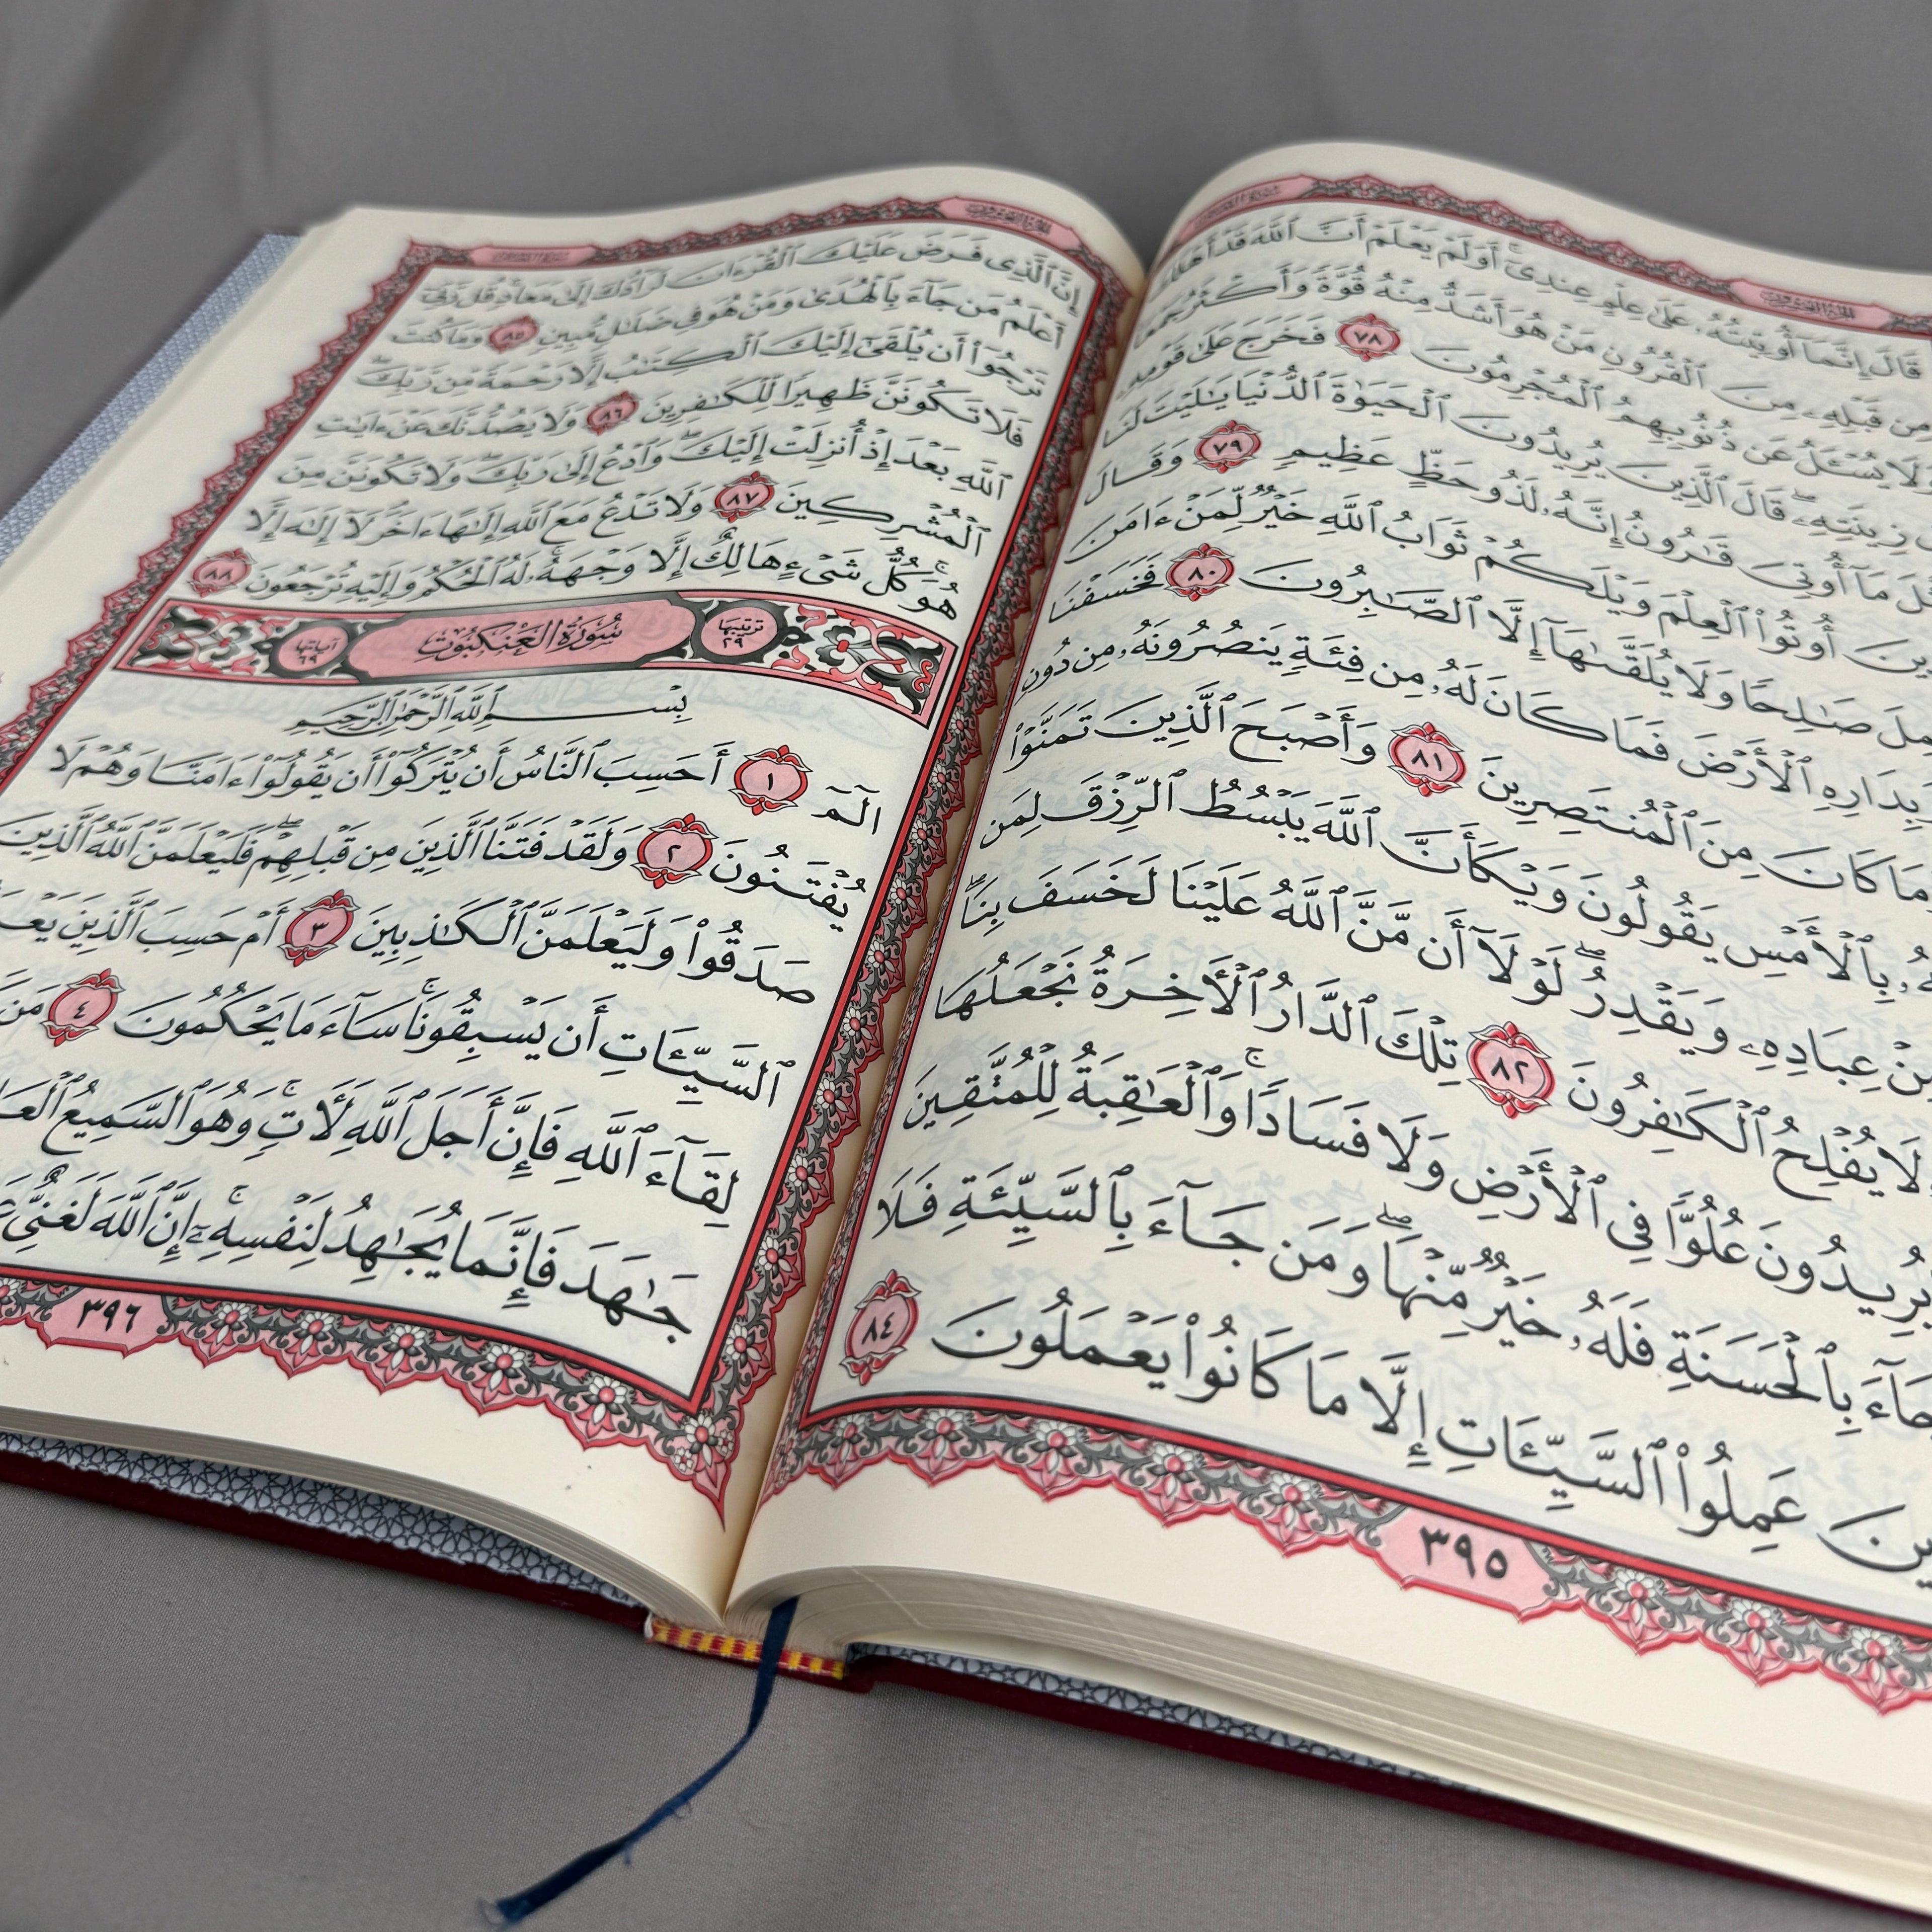 قَالَ إِنَّمَآ أُوتِيتُهُۥ عَلَىٰ عِلْمٍ عِندِىٓ ۚ أَوَلَمْ يَعْلَمْ أَنَّ ٱللَّهَ قَدْ أَهْلَكَ
مِن قَبْلِهِۦ مِنَ ٱلْقُرُونِ مَنْ هُوَ أَشَدُّ مِنْهُ قُوَّةً وَأَكْثَرُ جَمْعًا
وَلَا يُسْـَٔلُ عَن ذُنُوبِهِمُ ٱلْمُجْرِمُونَ ٧٨ فَخَرَجَ عَلَىٰ قَوْمِهِۦ
زِينَتِهِۦ ۖ قَالَ ٱلَّذِينَ يُرِيدُونَ ٱلْحَيَوٰةَ ٱلدُّنْيَا يَٰلَيْتَ لَنَا
مَآ أُوتِىَ قَٰرُونُ إِنَّهُۥ لَذُو حَظٍّ عَظِيمٍ ٧٩ وَقَالَ
أُوتُوا۟ ٱلْعِلْمَ وَيْلَكُمْ ثَوَابُ ٱللَّهِ خَيْرٌ لِّمَنْ ءَامَنَ
صَٰلِحًا وَلَا يُلَقَّىٰهَآ إِلَّا ٱلصَّٰبِرُونَ ٨٠ فَخَسَفْنَا
بِدَارِهِ ٱلْأَرْضَ فَمَا كَانَ لَهُۥ مِن فِئَةٍ يَنصُرُونَهُۥ مِن دُونِ
مَا كَانَ مِنَ ٱلْمُنتَصِرِينَ ٨١ وَأَصْبَحَ ٱلَّذِينَ تَمَنَّوْا۟
بِٱلْأَمْسِ يَقُولُونَ وَيْكَأَنَّ ٱللَّهَ يَبْسُطُ ٱلرِّزْقَ لِمَن
مِنْ عِبَادِهِۦ وَيَقْدِرُ ۖ لَوْلَآ أَن مَّنَّ ٱللَّهُ عَلَيْنَا لَخَسَفَ بِنَا ۖ
لَا يُفْلِحُ ٱلْكَٰفِرُونَ ٨٢ تِلْكَ ٱلدَّارُ ٱلْأَخِرَةُ نَجْعَلُهَا
يُرِيدُونَ عُلُوًّا فِى ٱلْأَرْضِ وَلَا فَسَادًا ۚ وَٱلْعَٰقِبَةُ لِلْمُتَّقِينَ
جَآءَ بِٱلْحَسَنَةِ فَلَهُۥ خَيْرٌ مِّنْهَا ۖ وَمَن جَآءَ بِٱلسَّيِّئَةِ فَلَا
عَمِلُوا۟ ٱلسَّيِّـَٔاتِ إِلَّا مَا كَانُوا۟ يَعْمَلُونَ ٨٤
٣٩٥
إِنَّ ٱلَّذِى فَرَضَ عَلَيْكَ ٱلْقُرْءَانَ لَرَآدُّكَ إِلَىٰ مَعَادٍ ۚ قُل رَّبِّىٓ
أَعْلَمُ مَن جَآءَ بِٱلْهُدَىٰ وَمَنْ هُوَ فِى ضَلَٰلٍ مُّبِينٍ ٨٥ وَمَا كُنتَ
تَرْجُوٓا۟ أَن يُلْقَىٰٓ إِلَيْكَ ٱلْكِتَٰبُ إِلَّا رَحْمَةً مِّن رَّبِّكَ ۖ
فَلَا تَكُونَنَّ ظَهِيرًا لِّلْكَٰفِرِينَ ٨٦ وَلَا يَصُدُّنَّكَ عَنْ ءَايَٰتِ
ٱللَّهِ بَعْدَ إِذْ أُنزِلَتْ إِلَيْكَ ۖ وَٱدْعُ إِلَىٰ رَبِّكَ ۖ وَلَا تَكُونَنَّ مِنَ
ٱلْمُشْرِكِينَ ٨٧ وَلَا تَدْعُ مَعَ ٱللَّهِ إِلَٰهًا ءَاخَرَ ۘ لَآ إِلَٰهَ إِلَّا
هُوَ ۚ كُلُّ شَىْءٍ هَالِكٌ إِلَّا وَجْهَهُۥ ۚ لَهُ ٱلْحُكْمُ وَإِلَيْهِ تُرْجَعُونَ ٨٨
ترتيبها ٢٩ سُورَةُ العَنكَبُوتِ آياتها ٦٩
بِسْمِ ٱللَّهِ ٱلرَّحْمَٰنِ ٱلرَّحِيمِ
الٓمٓ ١ أَحَسِبَ ٱلنَّاسُ أَن يُتْرَكُوٓا۟ أَن يَقُولُوٓا۟ ءَامَنَّا وَهُمْ لَا
يُفْتَنُونَ ٢ وَلَقَدْ فَتَنَّا ٱلَّذِينَ مِن قَبْلِهِمْ ۖ فَلَيَعْلَمَنَّ ٱللَّهُ ٱلَّذِينَ
صَدَقُوا۟ وَلَيَعْلَمَنَّ ٱلْكَٰذِبِينَ ٣ أَمْ حَسِبَ ٱلَّذِينَ
ٱلسَّيِّـَٔاتِ أَن يَسْبِقُونَا ۚ سَآءَ مَا يَحْكُمُونَ ٤ مَن
لِقَآءَ ٱللَّهِ فَإِنَّ أَجَلَ ٱللَّهِ لَـَٔاتٍ ۚ وَهُوَ ٱلسَّمِيعُ
جَٰهَدَ فَإِنَّمَا يُجَٰهِدُ لِنَفْسِهِۦٓ ۚ إِنَّ ٱللَّهَ لَغَنِىٌّ
٣٩٦